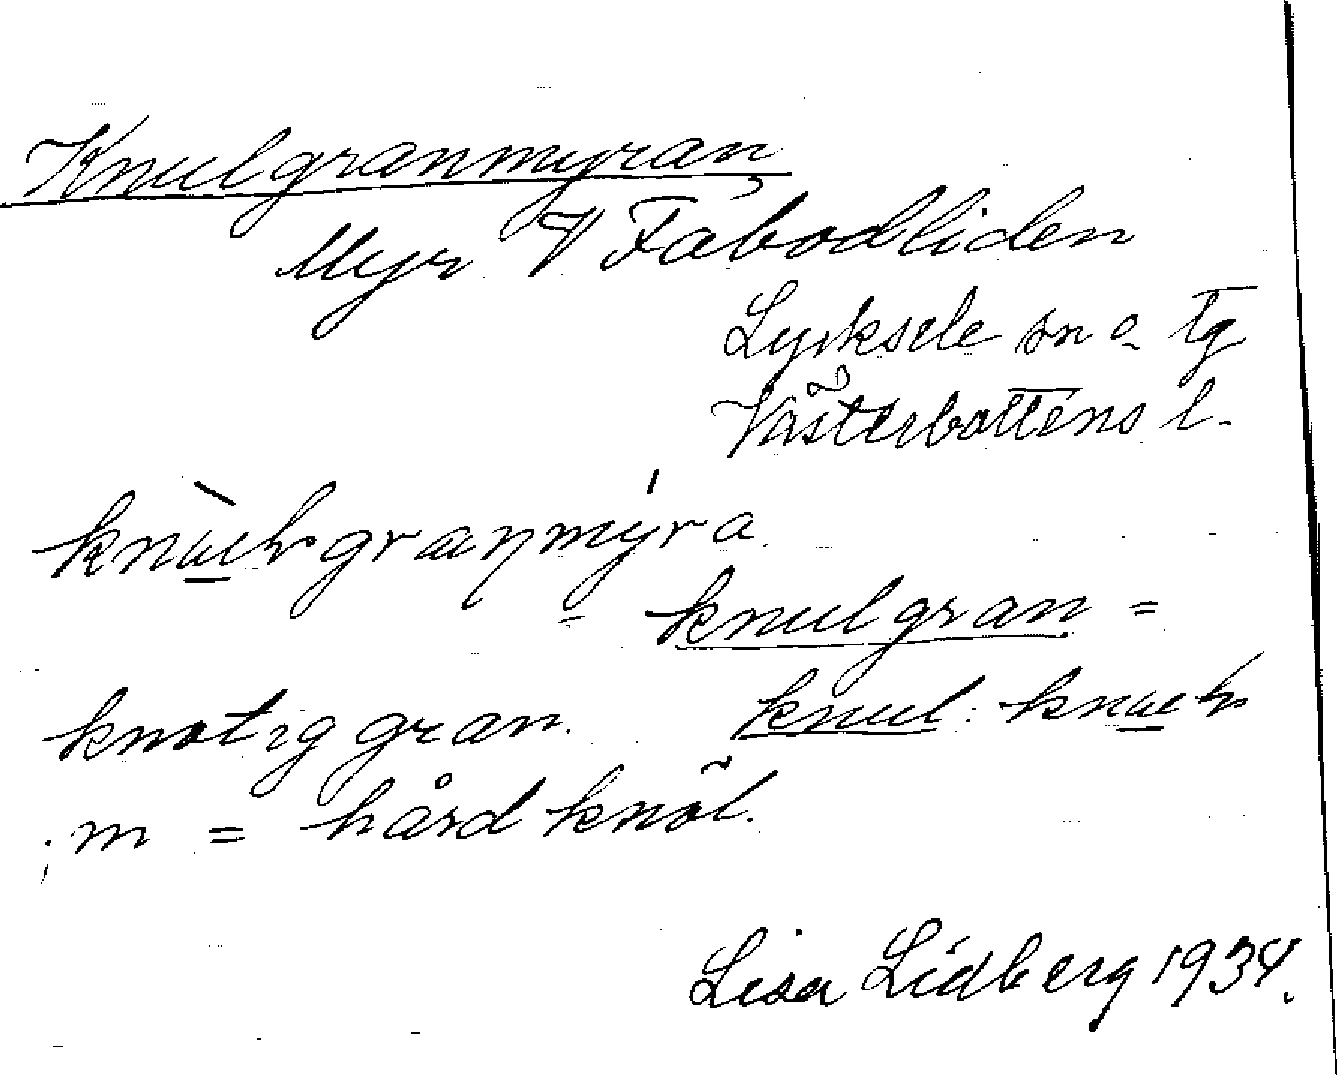 Knulgranmyran
Myr V Fäbodliden
Lycksele sn o tg
Västerbottens l.
granmýra
knulgran =
knotig gran. knul:
; m = hård knöl.
Lisa Lidberg 1934.